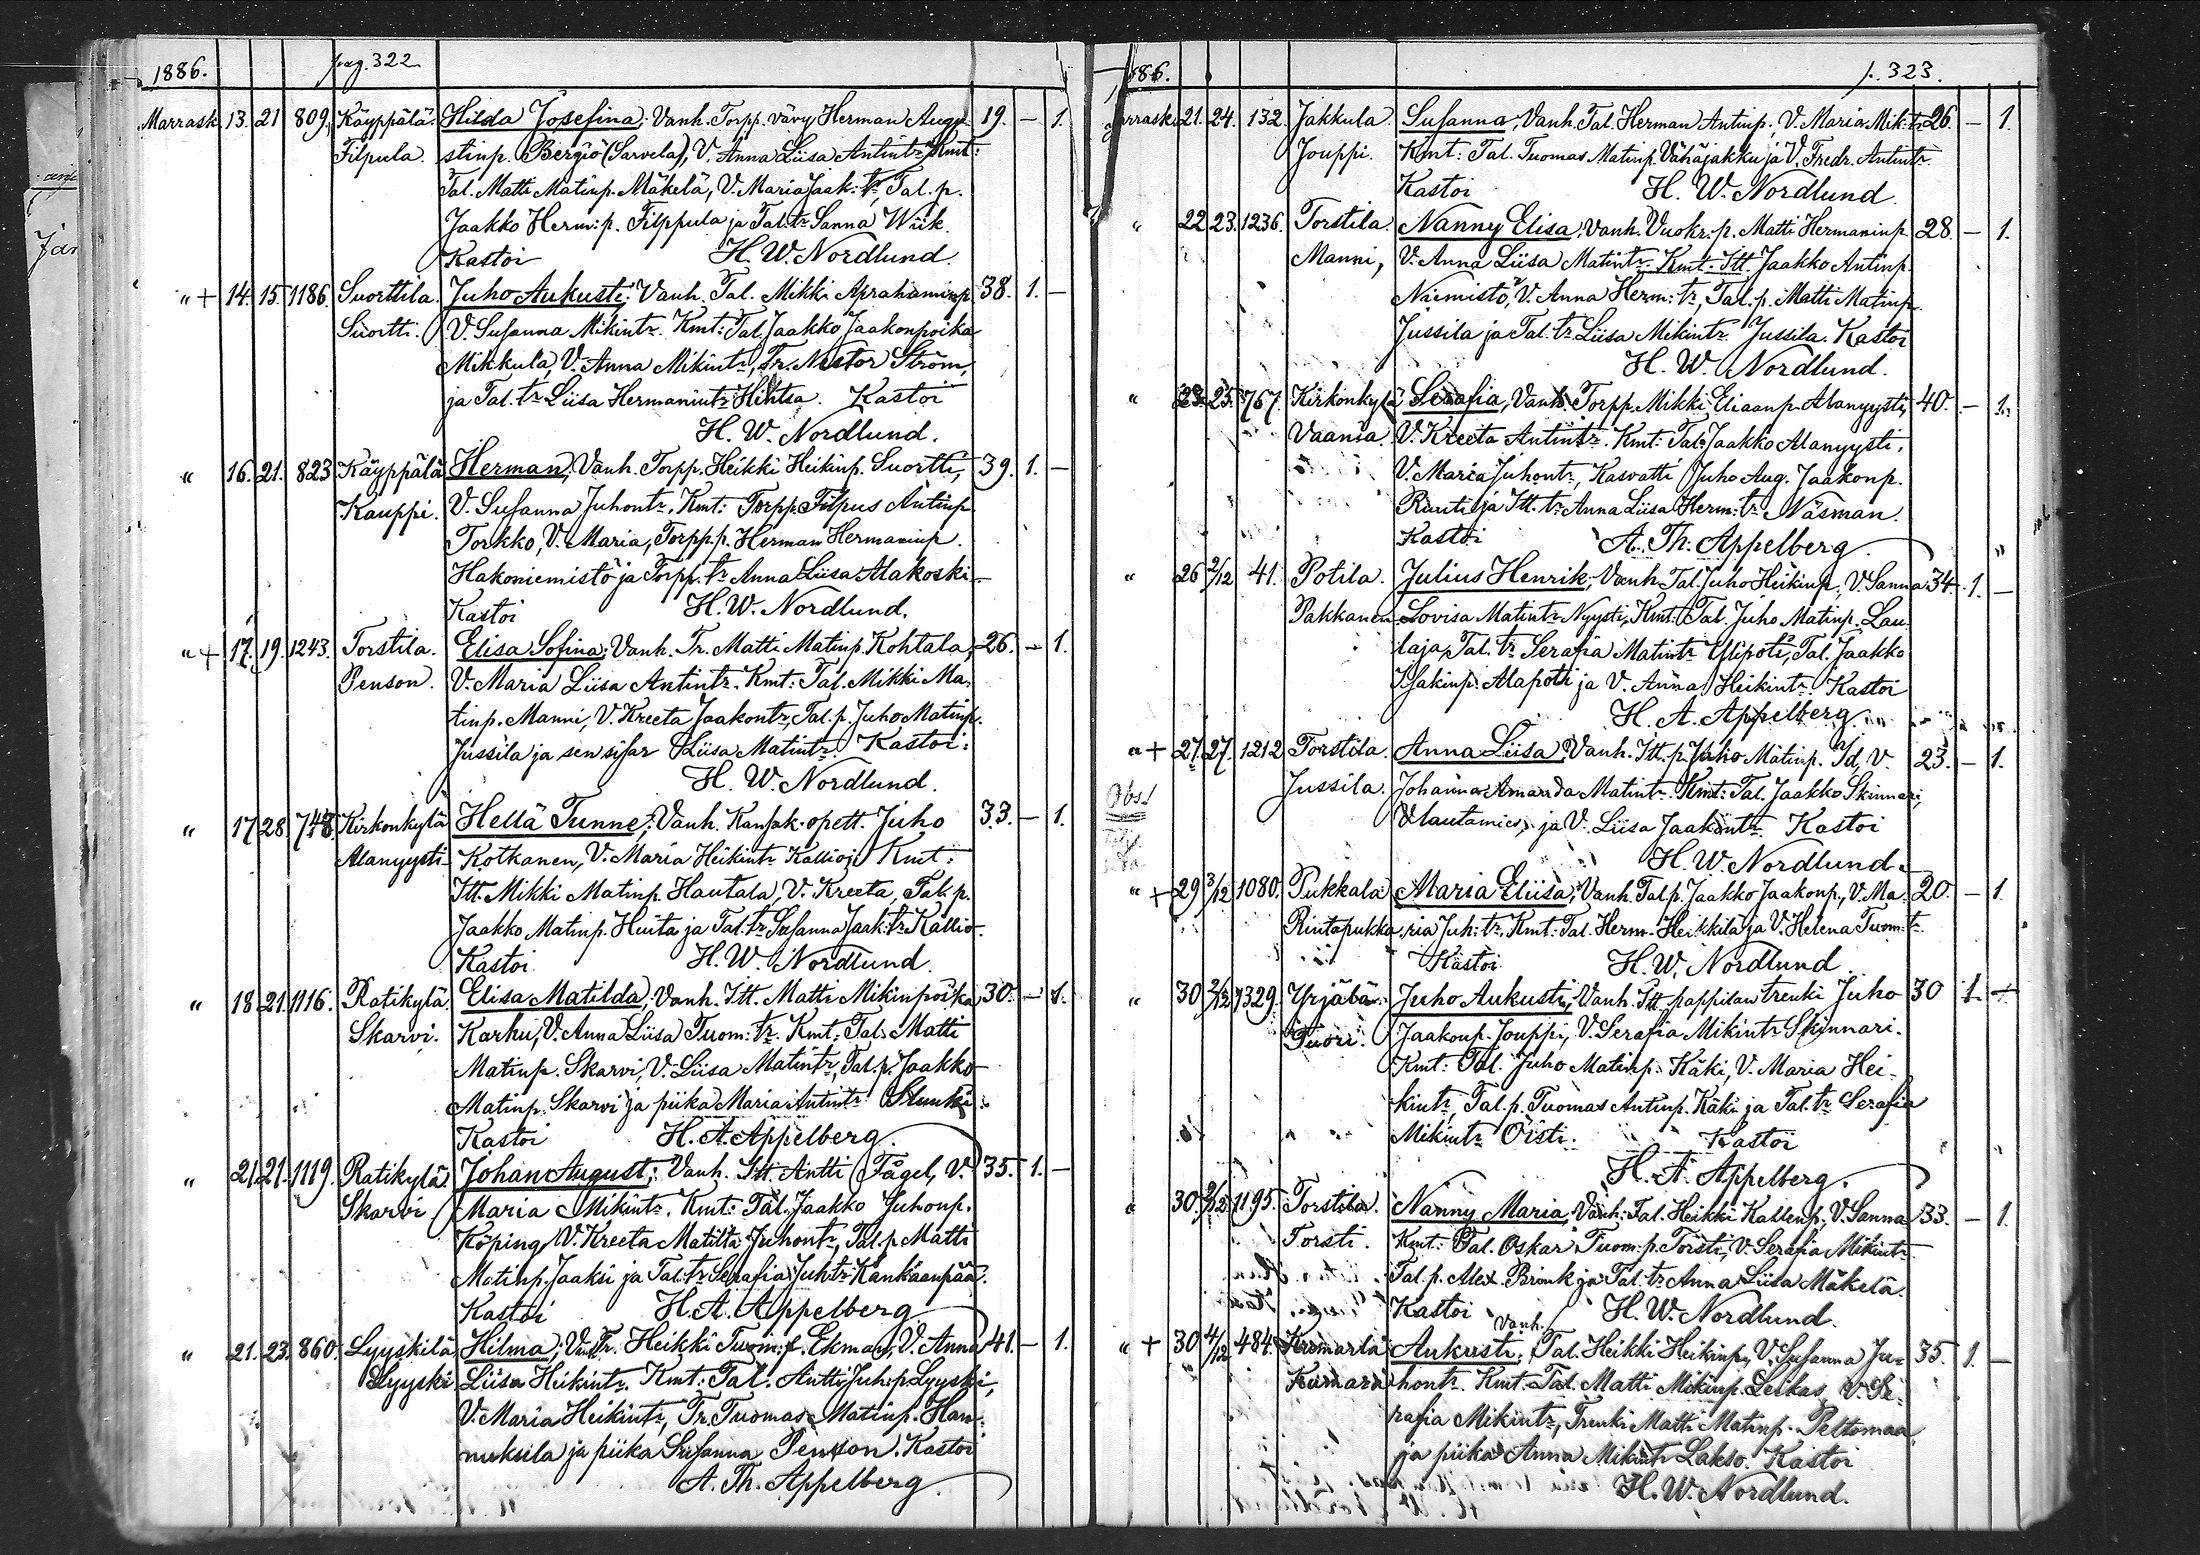 1886. pag. 322
Marrask. 13. 21 809. Käyppälä Hilda Josefina; Vanh. Torpp. vävy Herman Augu- 19. – 1.
Filpula. stinp. Bergiö (Sarvela), V. Anna Liisa Antintr Kmt:
Tal. Matti Matinp. Mäkelä, V. Maria Jaak:tr, Tal. p.
Jaakko Herm:p. Filppula ja Tal.tr Sanna Wiik.
Kastoi H. W. Nordlund
" + 14. 15. 1186. Suorttila. Juho Aukusti; Vanh. Tal. Mikki Aprahaminp. 38. 1. –
Suortti. V. Susanna Mikintr. Kmt: Tal. Jaakko Jaakonpoika
Mikkula, V. Anna Mikintr, Tr. Nestor Ström,
ja Tal. tr Liisa Hermanintr Hihtsa. Kastoi
H. W. Nordlund.
" 16. 21. 823 Käyppälä Herman; Vanh. Torpp. Heikki Heikinp. Suortti, 39. 1. –
Kauppi. V. Susanna Juhontr, Kmt: Torpp. Filpus Antinp
Torkko, V. Maria, Torpp. p. Herman Hermaninp.
Hakoniemistö ja Torpp. tr Anna Liisa Alakoski
Kastoi H. W. Nordlund.
" + 17. 19. 1243. Torstila. Elisa Sofina; Vanh. Tr. Matti Matinp. Kohtala, 26. – 1.
Penson. V. Maria Liisa Antintr. Kmt: Tal. Mikki Ma-
tinp. Manni, V. Kreeta Jaakontr, Tal. p. Juho Matinp.
Jussila ja sen sisar Liisa Matintr. Kastoi:
H. W. Nordlund.
" 17 28. 748. Kirkonkylä Hellä Tunne; Vanh. Kansak. opett. Juho 33. – 1.
Alanyysti Kotkanen, V. Maria Heikintr Kallioj. Kmt:
Itt. Mikki Matinp. Hautala, V. Kreeta, Tal. p.
Jaakko Matinp. Huita ja Tal. tr Susanna Jaak:tr Kallio.
Kastoi H. W. Nordlund.
" 18 21. 1116. Ratikylä. Elisa Matilda; Vanh. Itt. Matti Mikinpoika 30. – 1.
Skarvi. Karhu, V. Anna Liisa Tuom:tr. Kmt: Tal. Matti
Matinp. Skarvi, V. Liisa Matintr, Tal. p. Jaakko
Matinp. Skarvi ja piika Maria Antintr
Kastoi H. A. Appelberg.
" 21. 21. 1119. Ratikylä Johan August; Vanh. Itt. Antti Fågel, V. 35. 1. –
Skarvi Maria Mikintr. Kmt: Tal. Jaakko Juhonp.
Köping, V. Kreeta Matilta Juhontr, Tal. p Matti
Matinp. Jaaksi ja Tal. tr Serafia Juh:tr Kankaanpää.
Kastoi H. A. Appelberg
" 21. 23. 860. Lyyskilä Hilma; Vanh. Tr. Heikki Tuom:p. Ekman, V. Anna 41. – 1.
Lyyski Liisa Heikintr. Kmt: Tal. Antti Juh:p. Lyyski,
V. Maria Heikintr, Tr. Tuomas Matinp. Han-
nuksila ja piika Susanna Penson. Kastoi
A. Th. Appelberg.
1886. p. 323.
Marrask. 21. 24. 132. Jakkula Susanna; Vanh. Tal. Herman Antinp., V. Maria Mik:tr 26. – 1.
Jouppi. Kmt: Tal. Tuomas Matinp. Vähäjakku ja V. Fredr. Antintr.
Kastoi H. W. Nordlund.
" 22 23. 1236. Torstila. Nanny Elisa; Vanh. Vuokr. p. Matti Hermaninp. 28. – 1.
Manni, V. Anna Liisa Matintr. Kmt: Itt. Jaakko Antinp.
Niemistö, V. Anna Herm:tr, Tal. p. Matti Matinp.
Jussila ja Tal. tr Liisa Mikintr. Jussila. Kastoi
H. W. Nordlund.
" 23. 25. 767. Kirkonkylä Serafia, Vanh. Torpp. Mikki Eliaanp. Alanyysti, 40. – 1.
Vaania. V. Kreeta Antintr. Kmt: Tal. Jaakko Alanyysti,
V. Maria Juhontr, Kasvatti Juho Aug. Jaakonp.
Ranti ja Itt. tr Anna Liisa Herm:tr Näsman.
Kastoi A. Th. Appelberg.
" 26 2/12 41. Potila. Julius Henrik; Vanh. Tal. Juho Heikinp., V. Sanna 34. 1. –
Pakkanen Lovisa Matintr Nyysti, Kmt: Tal. Juho Matinp. Lau-
laja, Tal. tr Serafia Matintr Ylipoti, Tal. Jaakko
Isakinp. Alapoti ja V. Anna Heikintr. Kastoi
H. A. Appelberg.
" + 27. 27. 1212 Torstila. Anna Liisa; Vanh. Itt. p. Juho Matinp. Id, V. 23. – 1.
Obs! Jussila. Johanna Amanda Matintr. Kmt: Tal. Jaakko Skinnari,
V lautamies, ja V. Liisa Jaakontr. Kastoi
H. W. Nordlund.
" + 29 3/12 1080. Pukkala Maria Eliisa; Vanh. Tal. p. Jaakko Jaakonp., V. Ma- 20. – 1.
Rintapukka. ria Juh:tr. Kmt: Tal. Herm. Heikkilä ja V. Helena Tuom:tr
Kastoi H. W. Nordlund
" 30 2/12 1329. Yrjälä. Juho Aukusti; Vanh. Itt. pappilan trenki Juho 30 1. –
Puori. Jaakonp. Jouppi, V. Serafia Mikintr Skinnari.
Kmt: Tal. Juho Matinp. Käki, V. Maria Hei-
kintr, Tal. p. Tuomas Antinp. Käki ja Tal. tr Serafia
Mikintr Öisti. Kastoi
H. A. Appelberg.
" 30. 2/12 1195. Torstila. Nanny Maria; Vanh. Tal. Heikki Kallenp., V. Sanna 33. – 1.
Torsti. Kmt: Tal. Oskar Tuom:p. Torsti, V. Serafia Mikintr.
Tal. p. Alex. Brink ja Tal. tr Anna Liisa Mäkelä.
Kastoi H. W. Nordlund.
" + 30 4/12 484. Kuomarla Aukusti; Vanh. Tal. Heikki Heikinp., V. Susanna Ju- 35. 1. –
Kuomara hontr. Kmt. Tal. Matti Mikinp. Leskas, V. Se-
rafia Mikintr, Trenki Matti Matinp. Peltomaa
ja piika Anna Mikintr Lakso. Kastoi
H. W. Nordlund.